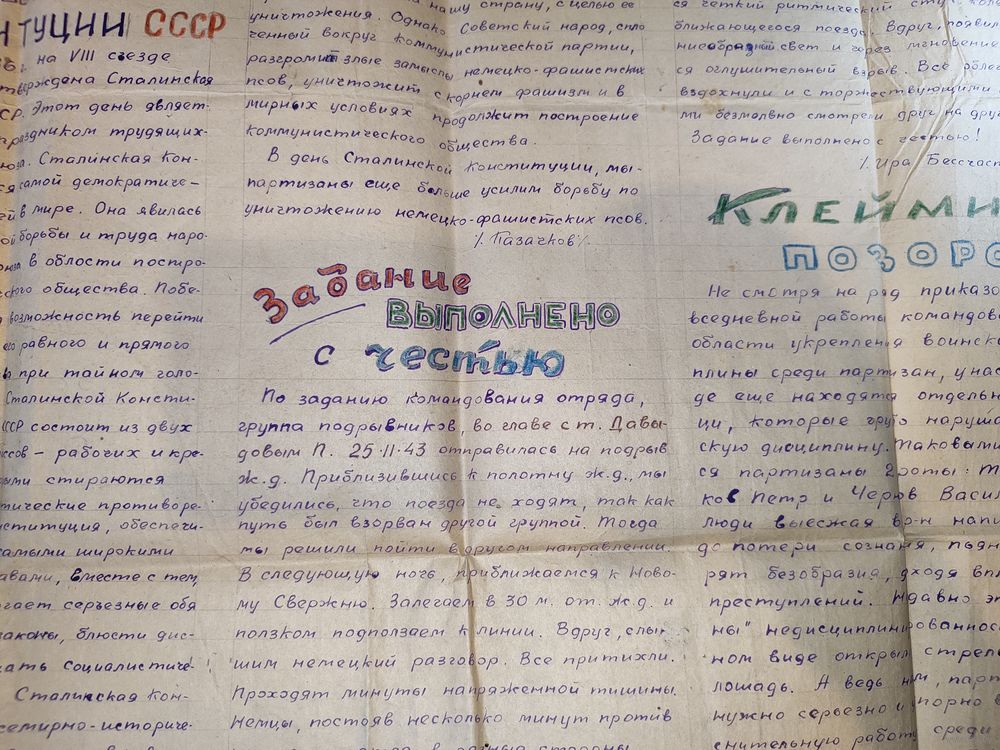 ТУЦИИ СССР
на VIII съезде
Сталинская
Этот день являет-
трудящих-
Сталинская Кон-
самой демократиче-
в мире. Она явилась
борьбы и труда наро-
в области постро-
общества. Побе-
возможность перейти
равного и прямого
при тайном голо-
Сталинской Консти-
СССР состоит из двух
рабочих и кре-
стираются
противоре-
обеспечи-
самыми широкими
вместе с тем,
серьезные обя
законы, блюсти дис-
социалистиче-
Сталинская Кон-
семирно-историче-
нашу страну, с целью ее
уничтожения. Однако Советский народ, спло
ченный вокруг коммунистической партии,
разгромит злые замыслы немецко-фашистских
псов, уничтожит с корнем фашизм и в
мирных условиях продолжит построение
коммунистического общества.
В день Сталинской Конституции, мы-
партизаны еще больше усилим борьбу по
уничтожению немецко-фашистских псов.
/. Казачков/.
Задание
выполнено
с честью
По заданию командования отряда,
группа подрывников, во главе с т. Давы-
довым П. 25·11·43 отправилась на подрыв
ж.д. Приблизившись к полотну ж.д., мы
убедились, что поезда не ходят, так как
путь был взорван другой группой. Тогда
мы решили пойти в другом направлении.
В следующую ночь, приближаемся к Ново-
му Свержню. Залегаем в 30 м. от ж.д. и
ползком подползаем к линии. Вдруг, слы
шим немецкий разговор. Все притихли.
Проходят минуты напряженной тишины.
Немцы, постояв несколько минут против
в разные стороны
ся четкий ритмический стук
ближающегося поезда. Вдруг, появил
свет и через мгновение
ся оглушительный взрыв. Все облег
вздохнули и с торжествующими
ми безмолвно смотрели друг на друг
Задание выполнено с честью!
/. Ира Бессчаст
Клейми
позоро
Не смотря на ряд приказо
вседневной работы командов
области укрепления воинск
плины среди партизан, у нас
де еще находятся отдельн
ци, которые грубо наруша
скую дисциплину. Таковыми
ся партизаны 2 роты: Т
ков Петр и Черков Васил
люди выезжая в р-н напи
до потери сознания, пьян
рят безобразия, доходя впл
преступлений. Недавно эт
ны" недисциплинированнос
ном виде открыл стрель
лошадь. А ведь нам, парт
нужно серьезно и упорно в
снительную работу среди